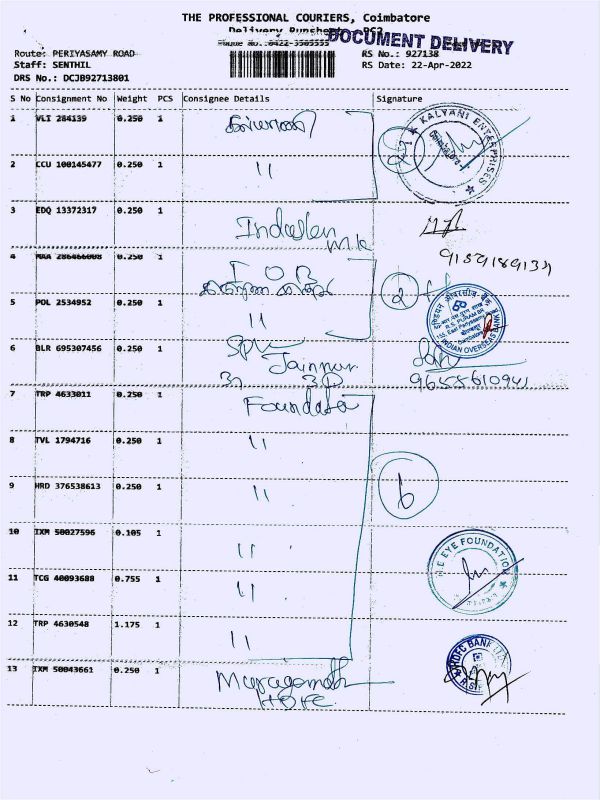 THE PROFESSIONAL COURIERS, Coimbatore
Delivery Runsheet
DOCUMENT DELIVERY
Phone No.:0422-3505555
Route: PERIYASAMY ROAD
RS No.: 927138
Staff: SENTHIL
RS Date: 22-Apr-2022
DRS No.: DCJB92713801
S No Consignment No Weight PCS Consignee Details Signature
1 VLI 284139 0.250 1
KALYANI ENTERPRISES
2 CCU 100145477 0.250 1 "
3 EDQ 13372317 0.250 1
4 MAA 286466008 0.250 1 I O B
2
5 POL 2534952 0.250 1 "
R.S. PURAM BR
INDIAN OVERSEAS BANK
6 BLR 695307456 0.250 1
9658610941
7 TRP 4633011 0.250 1
8 TVL 1794716 0.250 1 "
9 HRD 376538613 0.250 1 "
6
10 IXM 50027596 0.105 1 "
EYE FOUNDATION
11 TCG 40093688 0.755 1 "
12 TRP 4630548 1.175 1 "
HDFC BANK LTD
13 IXM 50043661 0.250 1
HDFC